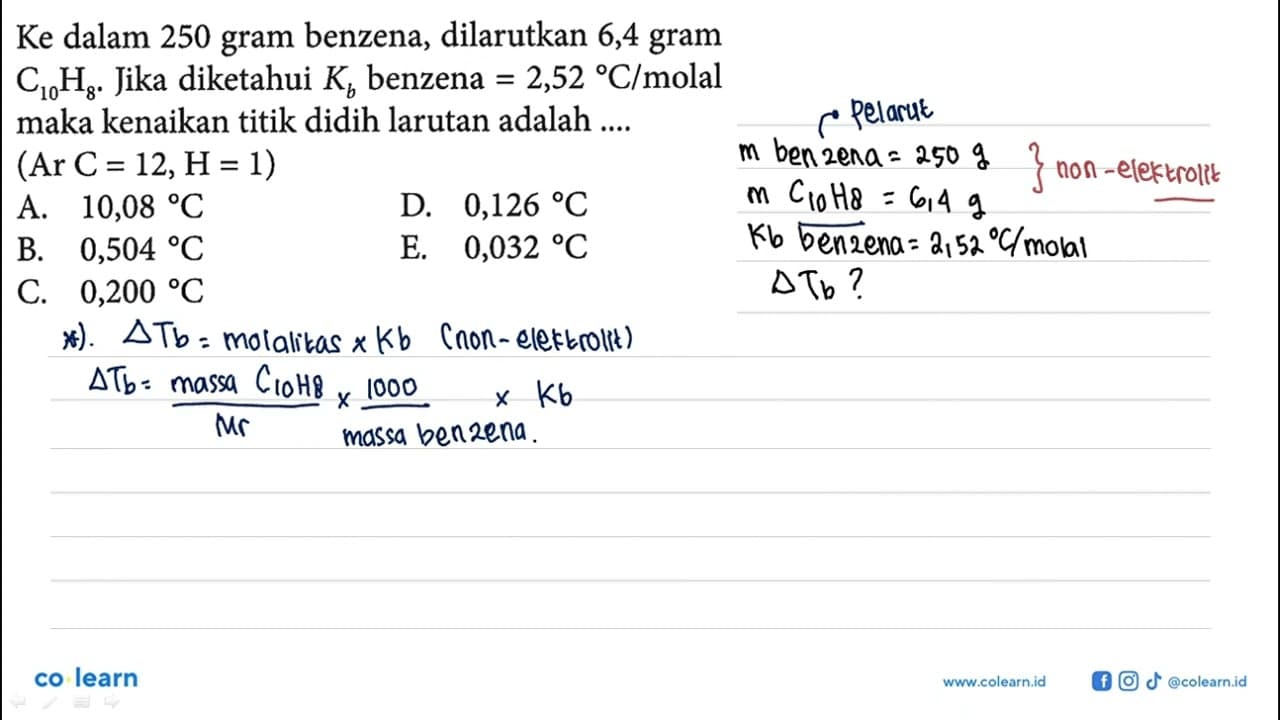 Ke dalam 250 gram benzena, dilarutkan 6,4 gram
C₁₀H₈. Jika diketahui K_b benzena = 2,52 °C/molal
maka kenaikan titik didih larutan adalah ....
(Ar C = 12, H = 1)
A. 10,08 °C
B. 0,504 °C
C. 0,200 °C
D. 0,126 °C
E. 0,032 °C
Pelarut
m benzena = 250 g
m C₁₀H₈ = 6,4 g
} non-elektrolit
Kb benzena = 2,52 °C/molal
ΔTb ?
*). ΔTb = molalitas x Kb (non-elektrolit)
ΔTb = massa C₁₀H₈ x 1000 x Kb
Mr massa benzena.
co learn
www.colearn.id
@colearn.id